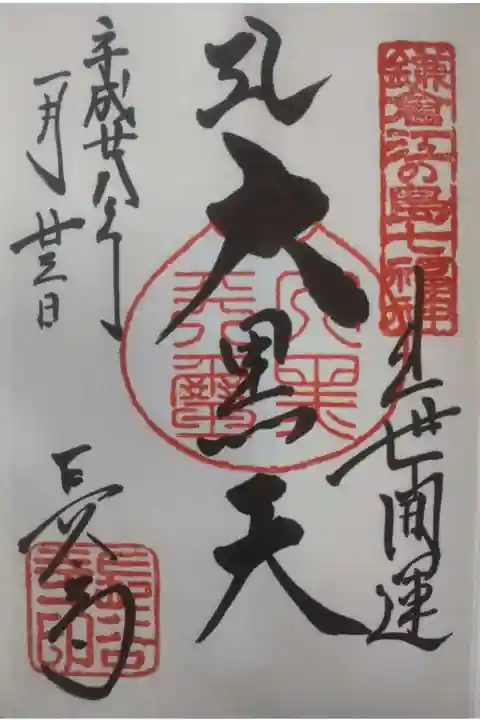 鎌倉江の島七福神
出世開運
大黒天
大黒
天璽
平成廿八年
一月廿三日
長谷寺